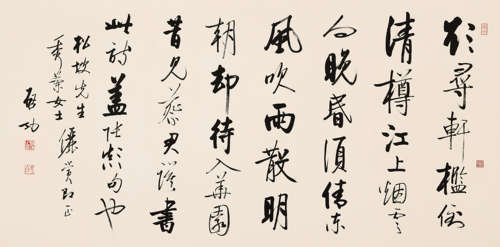 欲尋軒檻倒
清樽江上烟雲
向晚昏須倩東
風吹雨散明
朝却待入華園
昔見蔡君謨書
此詩蓋句也
松坡先生
秀華女士儷賞即正
啟功